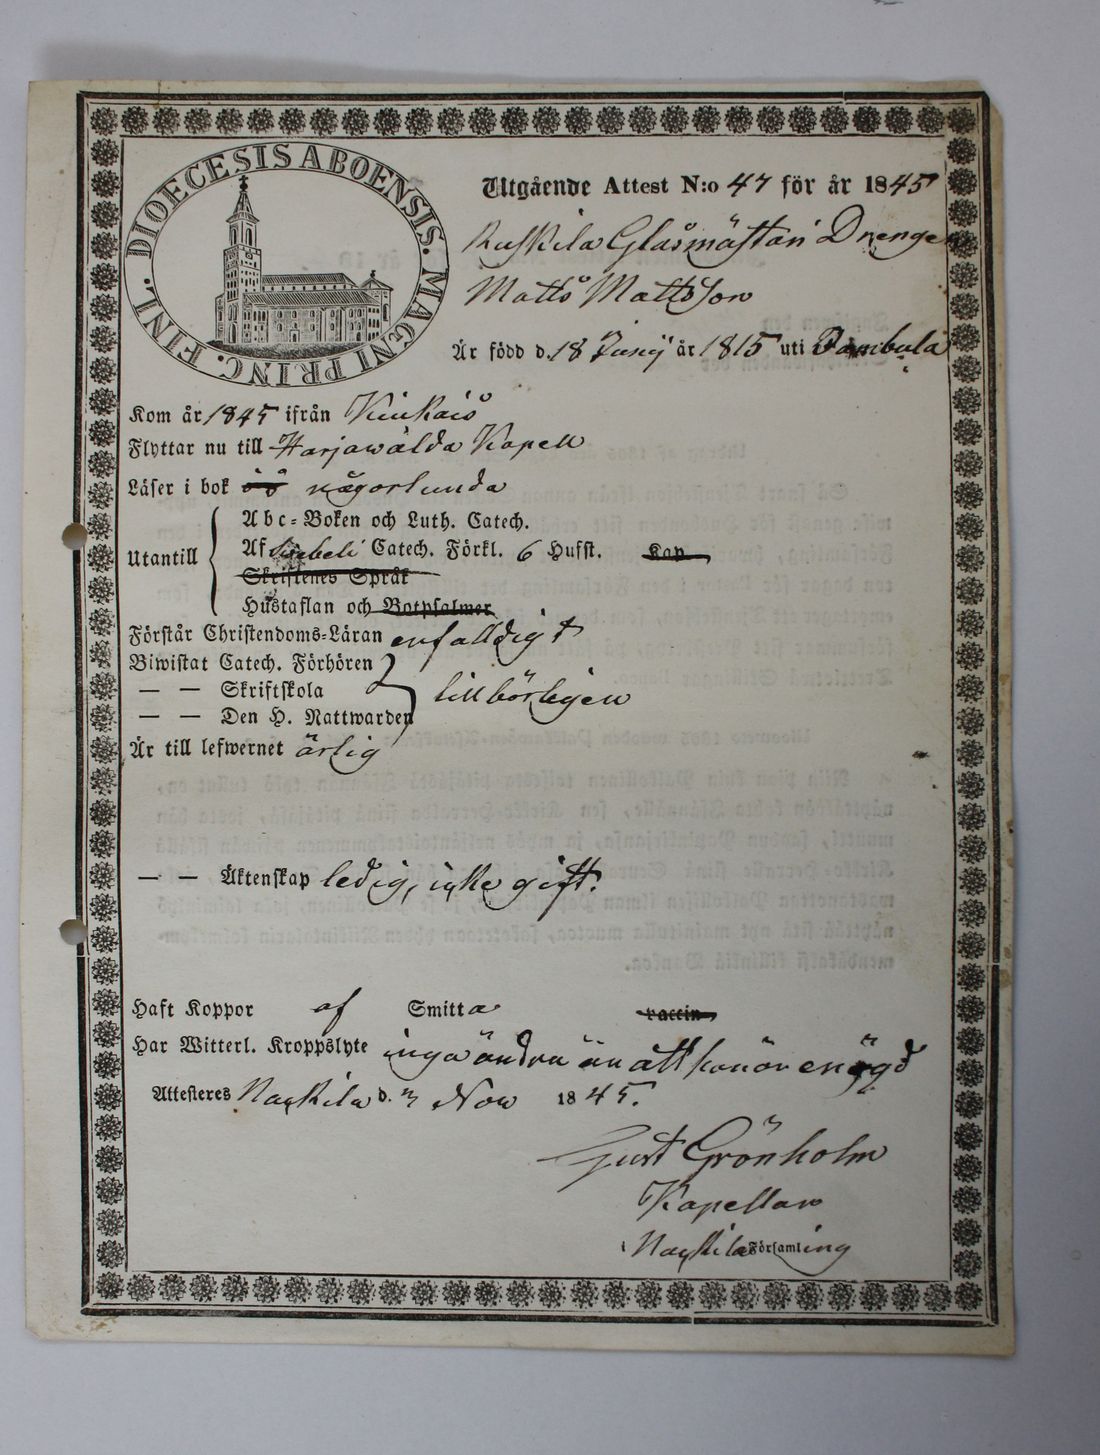 DIOECESIS ABOENSIS. MAGNI PRINC. FINL.
Utgående Attest N:o 47 för år 1845
Glasmästari Drengen
Matts Mattsson
Är född d. 18 Junij år 1815 uti
Kom år 1845 ifrån Kiukais
Flyttar nu till Harjawalda Kapell
Läser i bok någorlunda
Utantill
Abc-Boken och Luth. Catech.
Af Swebeli Catech. Förkl. 6 Hufst. Kap
Skriftenes Språk
Hustaflan och Botpsalmer
Förstår Christendoms-Läran enfalldigt
Biwistat Catech. Förhören
— — Skriftskola tillbörligen
— — Den H. Nattwarden
Är till lefwernet ärlig
— — Äktenskap ledig, icke gift.
Haft Koppor af Smitta vaccin
Har Witterl. Kroppslyte inga andra än att han är enögd
Attesteres Nackila d. 3 Nov 1845.
Gust Grönholm
Kapellan
i Nackila Församling